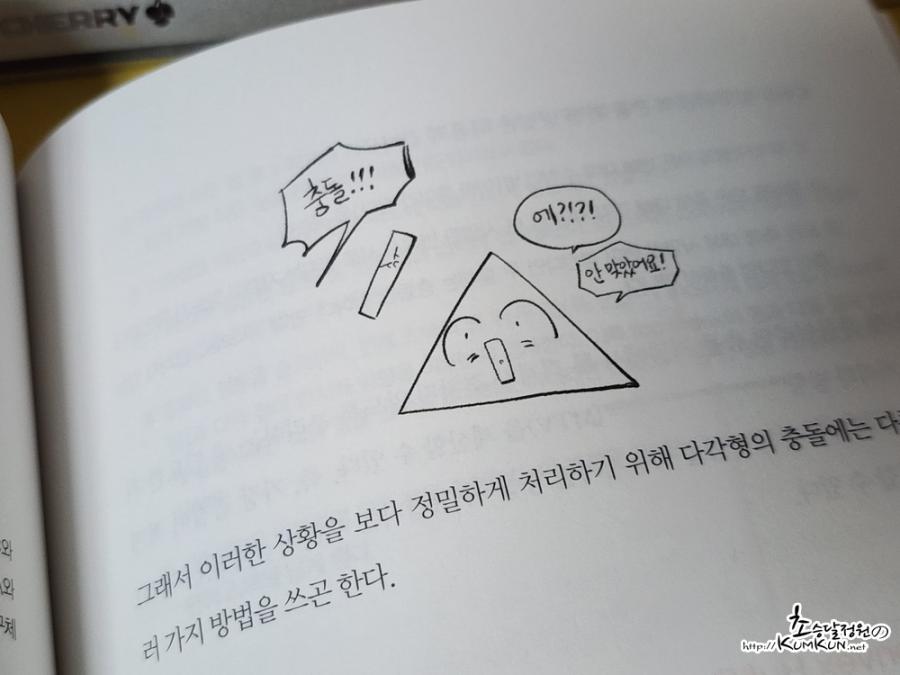 CHERRY
충돌!!!
에?!?!
안 맞았어요!
그래서 이러한 상황을 보다 정밀하게 처리하기 위해 다각형의 충돌에는
러 가지 방법을 쓰곤 한다.
초승달정원の
http://KUMKUN.net